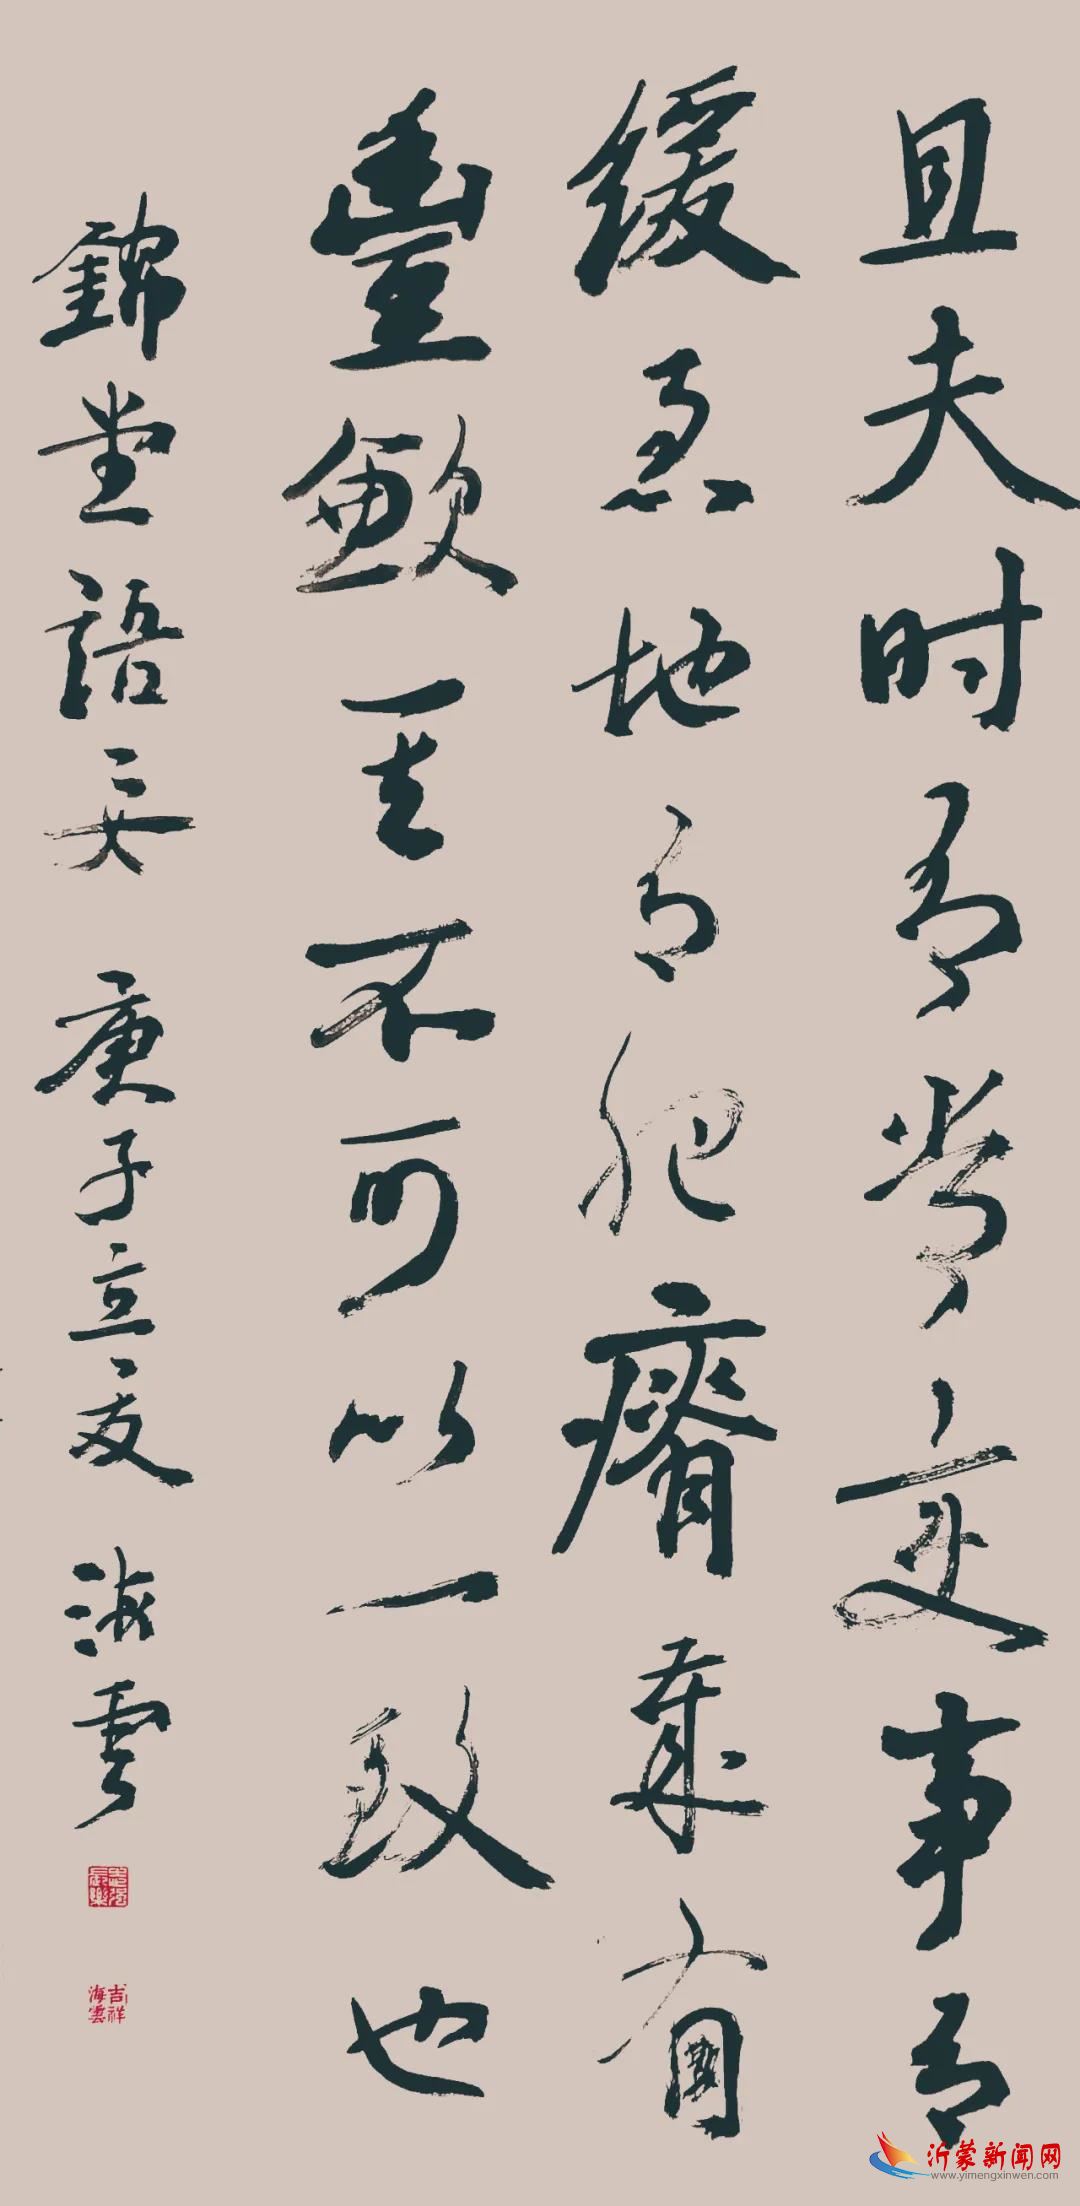 且夫时有常变事有
緩急地有肥瘠歲有
豐歉其不可以一致也
錦堂語 庚子立夏 海雲
吉祥海雲
沂蒙新闻网
www.yimengxinwen.com